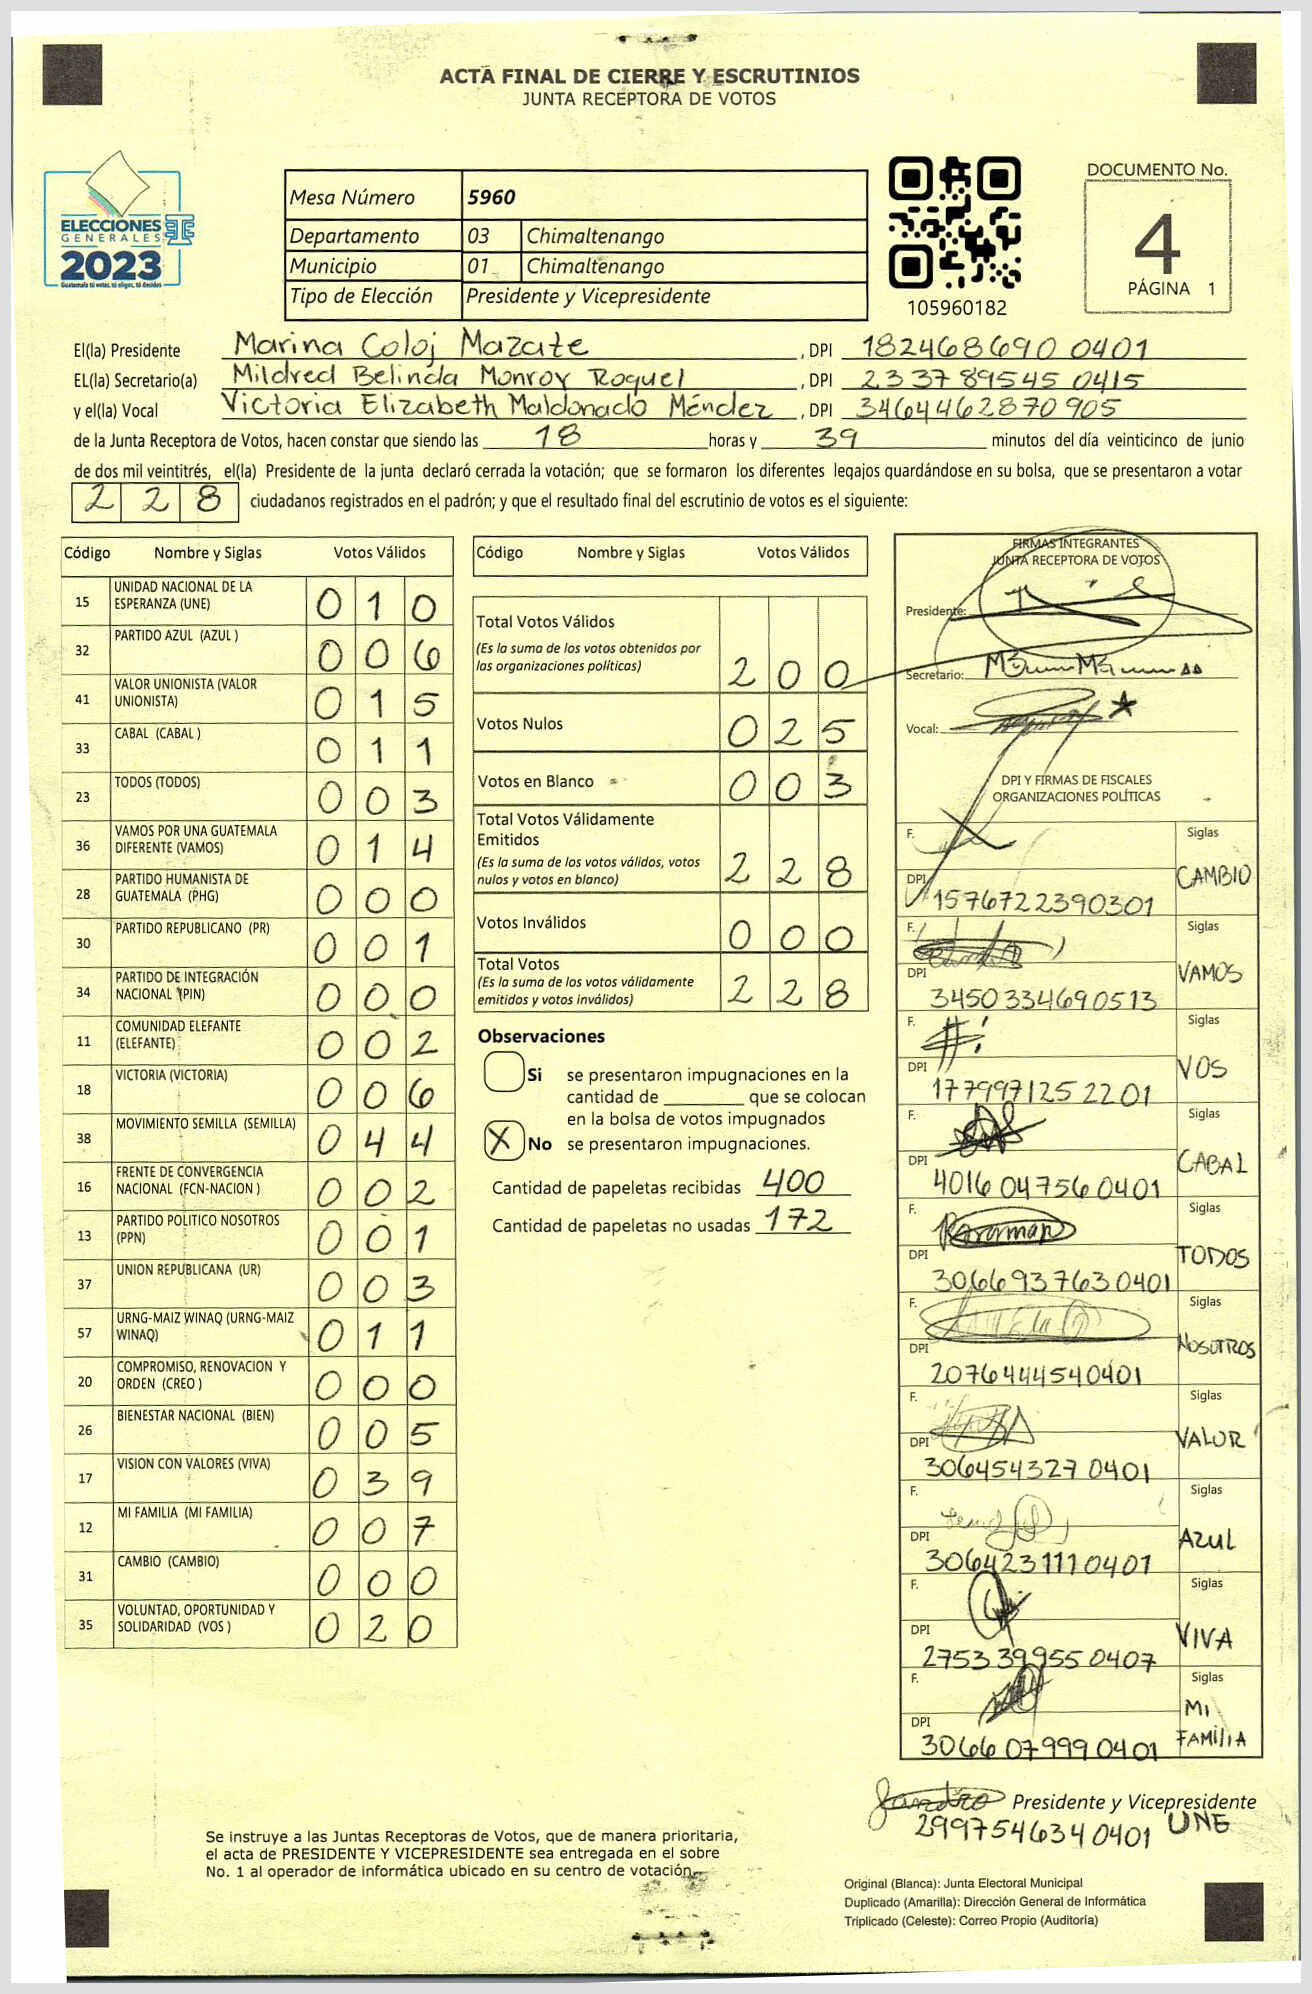 ACTA FINAL DE CIERRE Y ESCRUTINIOS
JUNTA RECEPTORA DE VOTOS
ELECCIONES
GENERALES
2023
Guatemala tú votas, tú eliges, tú decides
Mesa Número 5960
Departamento 03 Chimaltenango
Municipio 01 Chimaltenango
Tipo de Elección Presidente y Vicepresidente
105960182
DOCUMENTO No.
4
PÁGINA 1
El(la) Presidente Marina Coloj Mazate, DPI 182468690 0401
EL(la) Secretario(a) Mildred Belinda Monroy Roquel, DPI 233789545 0415
y el(la) Vocal Victoria Elizabeth Maldonado Méndez, DPI 3464462870905
de la Junta Receptora de Votos, hacen constar que siendo las 18 horas y 39 minutos del día veinticinco de junio
de dos mil veintitrés, el(la) Presidente de la junta declaró cerrada la votación; que se formaron los diferentes legajos guardándose en su bolsa, que se presentaron a votar
228 ciudadanos registrados en el padrón; y que el resultado final del escrutinio de votos es el siguiente:
Código Nombre y Siglas Votos Válidos
15 UNIDAD NACIONAL DE LA ESPERANZA (UNE) 010
32 PARTIDO AZUL (AZUL ) 006
41 VALOR UNIONISTA (VALOR UNIONISTA) 015
33 CABAL (CABAL ) 011
23 TODOS (TODOS) 003
36 VAMOS POR UNA GUATEMALA DIFERENTE (VAMOS) 014
28 PARTIDO HUMANISTA DE GUATEMALA (PHG) 000
30 PARTIDO REPUBLICANO (PR) 001
34 PARTIDO DE INTEGRACIÓN NACIONAL (PIN) 000
11 COMUNIDAD ELEFANTE (ELEFANTE) 002
18 VICTORIA (VICTORIA) 006
38 MOVIMIENTO SEMILLA (SEMILLA) 044
16 FRENTE DE CONVERGENCIA NACIONAL (FCN-NACION ) 002
13 PARTIDO POLITICO NOSOTROS (PPN) 001
37 UNION REPUBLICANA (UR) 003
57 URNG-MAIZ WINAQ (URNG-MAIZ WINAQ) 011
20 COMPROMISO, RENOVACION Y ORDEN (CREO ) 000
26 BIENESTAR NACIONAL (BIEN) 005
17 VISION CON VALORES (VIVA) 039
12 MI FAMILIA (MI FAMILIA) 007
31 CAMBIO (CAMBIO) 000
35 VOLUNTAD, OPORTUNIDAD Y SOLIDARIDAD (VOS ) 020
Código Nombre y Siglas Votos Válidos
Total Votos Válidos
(Es la suma de los votos obtenidos por
las organizaciones políticas) 200
Votos Nulos 025
Votos en Blanco 003
Total Votos Válidamente
Emitidos
(Es la suma de los votos válidos, votos
nulos y votos en blanco) 228
Votos Inválidos 000
Total Votos
(Es la suma de los votos válidamente
emitidos y votos inválidos) 228
Observaciones
Si se presentaron impugnaciones en la
cantidad de ________ que se colocan
en la bolsa de votos impugnados
X No se presentaron impugnaciones.
Cantidad de papeletas recibidas 400
Cantidad de papeletas no usadas 172
FIRMAS INTEGRANTES
JUNTA RECEPTORA DE VOTOS
Presidente:
Secretario:
Vocal:
DPI Y FIRMAS DE FISCALES
ORGANIZACIONES POLÍTICAS
F. Siglas
DPI 1576722390301 CAMBIO
F. Siglas
DPI 3450334690513 VAMOS
F. Siglas
DPI 177997125 2201 VOS
F. Siglas
DPI 4016 04756 0401 CABAL
F. Siglas
DPI 3066937630401 TODOS
F. Siglas
DPI 2076444540401 NOSOTROS
F. Siglas
DPI 306454327 0401 VALOR
F. Siglas
DPI 3064231110401 AZUL
F. Siglas
DPI 2753399550407 VIVA
F. Siglas
DPI 3066079990401 MI FAMILIA
Presidente y Vicepresidente
2997546340401 UNE
Se instruye a las Juntas Receptoras de Votos, que de manera prioritaria,
el acta de PRESIDENTE Y VICEPRESIDENTE sea entregada en el sobre
No. 1 al operador de informática ubicado en su centro de votación.
Original (Blanca): Junta Electoral Municipal
Duplicado (Amarilla): Dirección General de Informática
Triplicado (Celeste): Correo Propio (Auditoría)